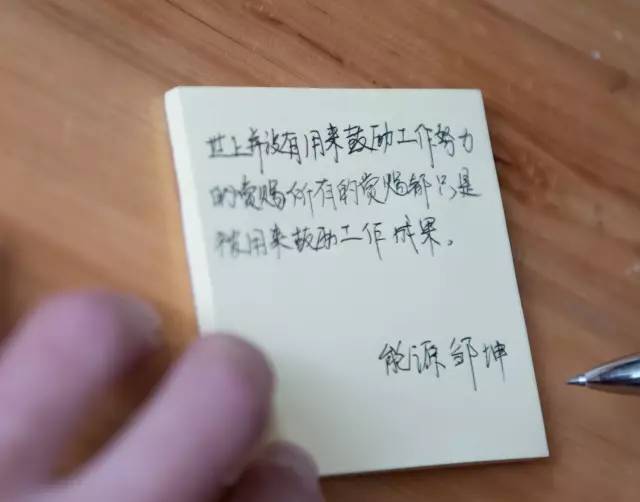 世上并没有用来鼓励工作努力
的赏赐所有的赏赐都只是
被用来鼓励工作成果。
能源邹坤